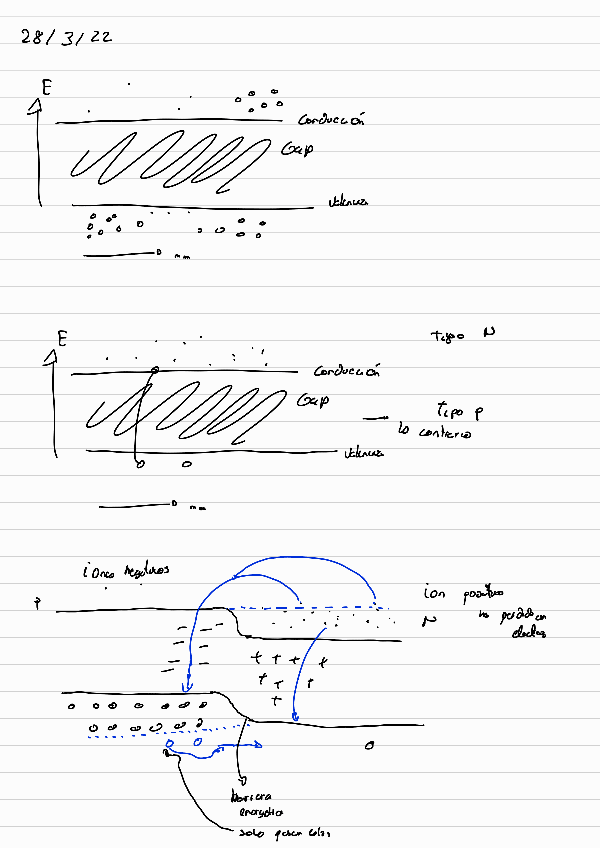 28/3/22
E
Conducción
Gap
Valencia
E
Tipo N
Conducción
Gap
Tipo p
lo contrario
Valencia
iones negativos
P
ion positivo
N
ha perdido un
electron
Barrera
energética
solo pasan estos